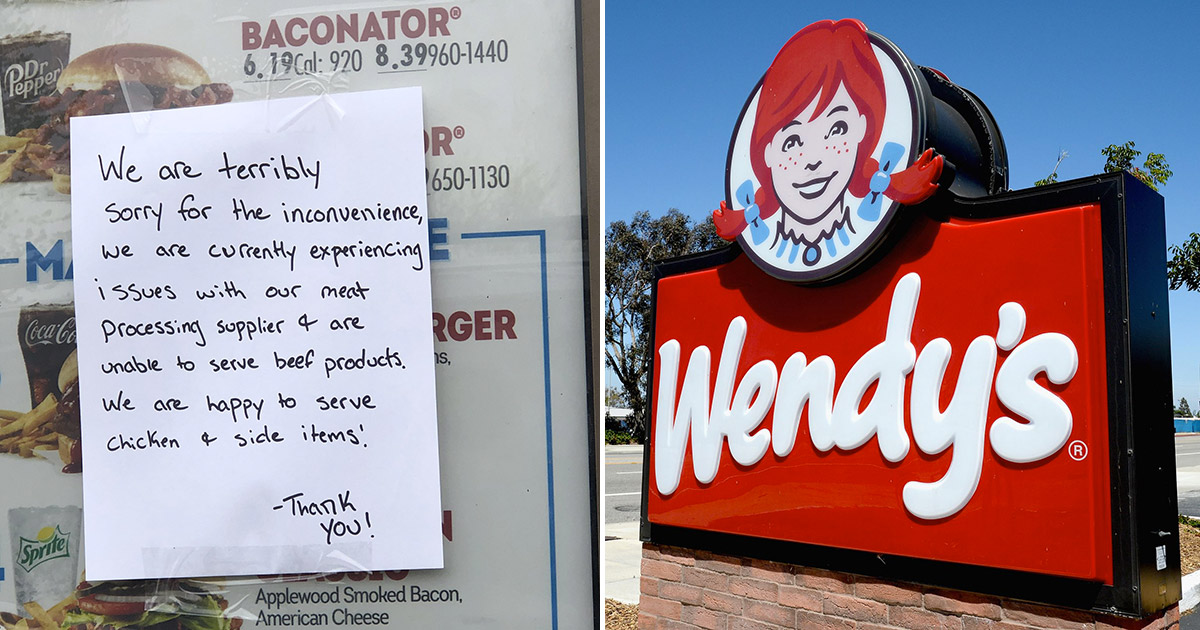 BACONATOR®
6.19Cal: 920 8.39960-1440
Dr Pepper
OR®
650-1130
We are terribly
sorry for the inconvenience,
we are currently experiencing
issues with our meat
processing supplier & are
unable to serve beef products.
We are happy to serve
chicken & side items!
-Thank
you!
MA
E
Coca-Co
RGER
ns,
Sprite
N
Applewood Smoked Bacon,
American Cheese
Wendy's®